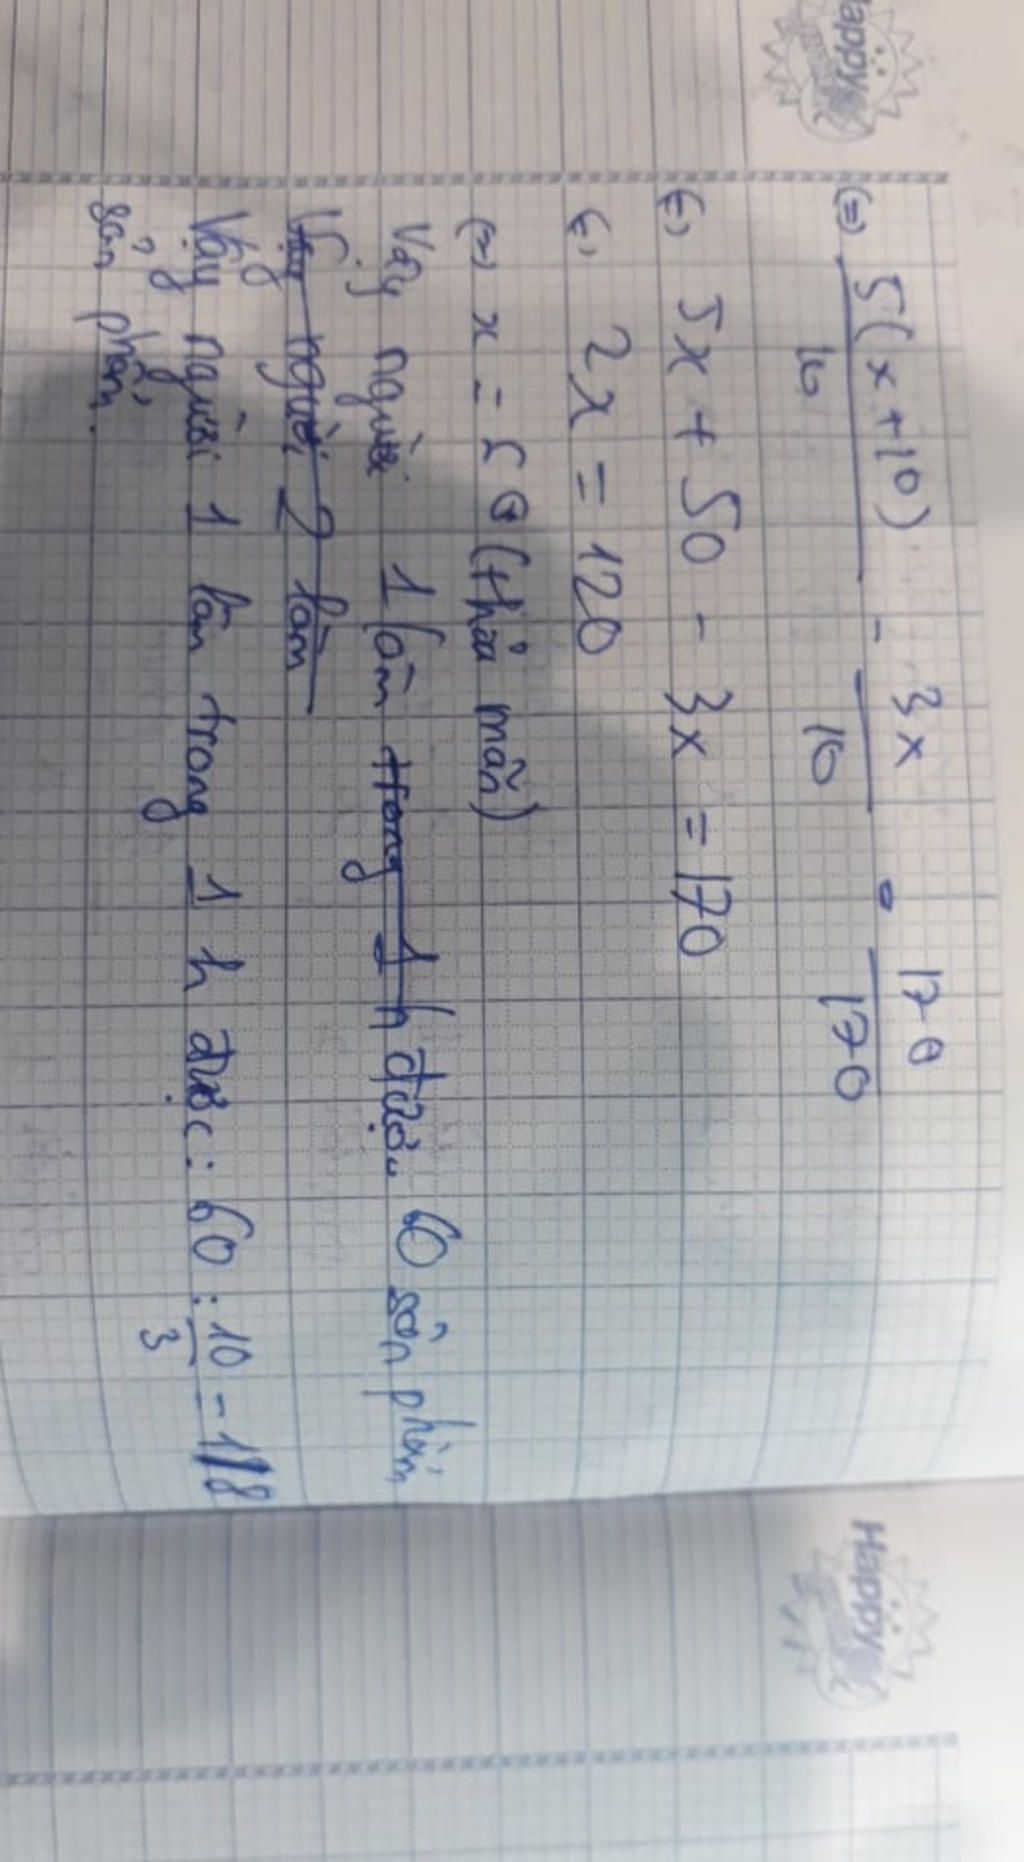 Happy
(=) 5(x+10)/10 - 3x/10 = 170/170
(=) 5x + 50 - 3x = 170
(=) 2x = 120
(=) x = 60 (thỏa mãn)
Vậy người 1 làm trong 1 h được 60 sản phẩm
Vậy người 2 làm
Vậy người 1 làm trong 1 h được : 60 : 10/3 = 18
sản phẩm.
Happy